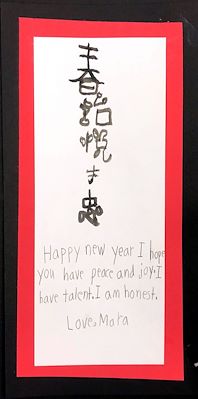 春悦才忠
Happy new year I hope
you have peace and joy.I
have talent.I am honest.
Love,Mara